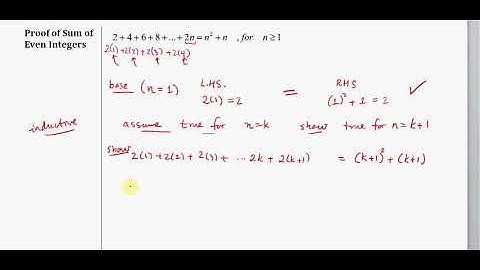 Proof of Sum of
Even Integers
2 + 4 + 6 + 8 + ... + 2n = n² + n , for n ≥ 1
2(1) + 2(2) + 2(3) + 2(4)
base (n=1) L.H.S. RHS
2(1) = 2 = (1)² + 1 = 2 ✓
inductive assume true for n=k show true for n=k+1
show 2(1) + 2(2) + 2(3) + ... 2k + 2(k+1) = (k+1)² + (k+1)